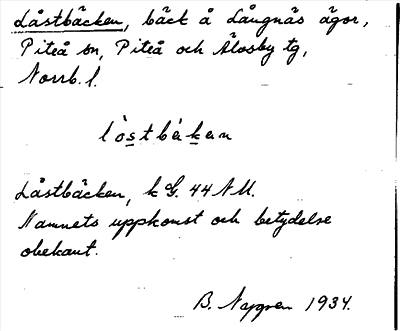 Låstbäcken, bäck å Långnäs ägor,
Piteå sn, Piteå och Älvsby tg,
Norrb. l.
lòstbàkan
Låstbäcken, k G. 44 NM.
Namnets uppkomst och betydelse
obekant.
B. 1934.